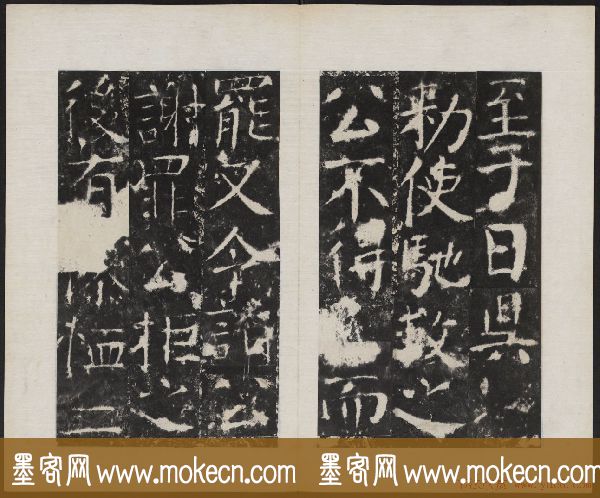 至于日昃
勑使馳救之
公不得已而
罷又令詣公
謝罪公拒之
後有 二
墨客网 www.mokecn.com 墨客网 www.mokecn.com